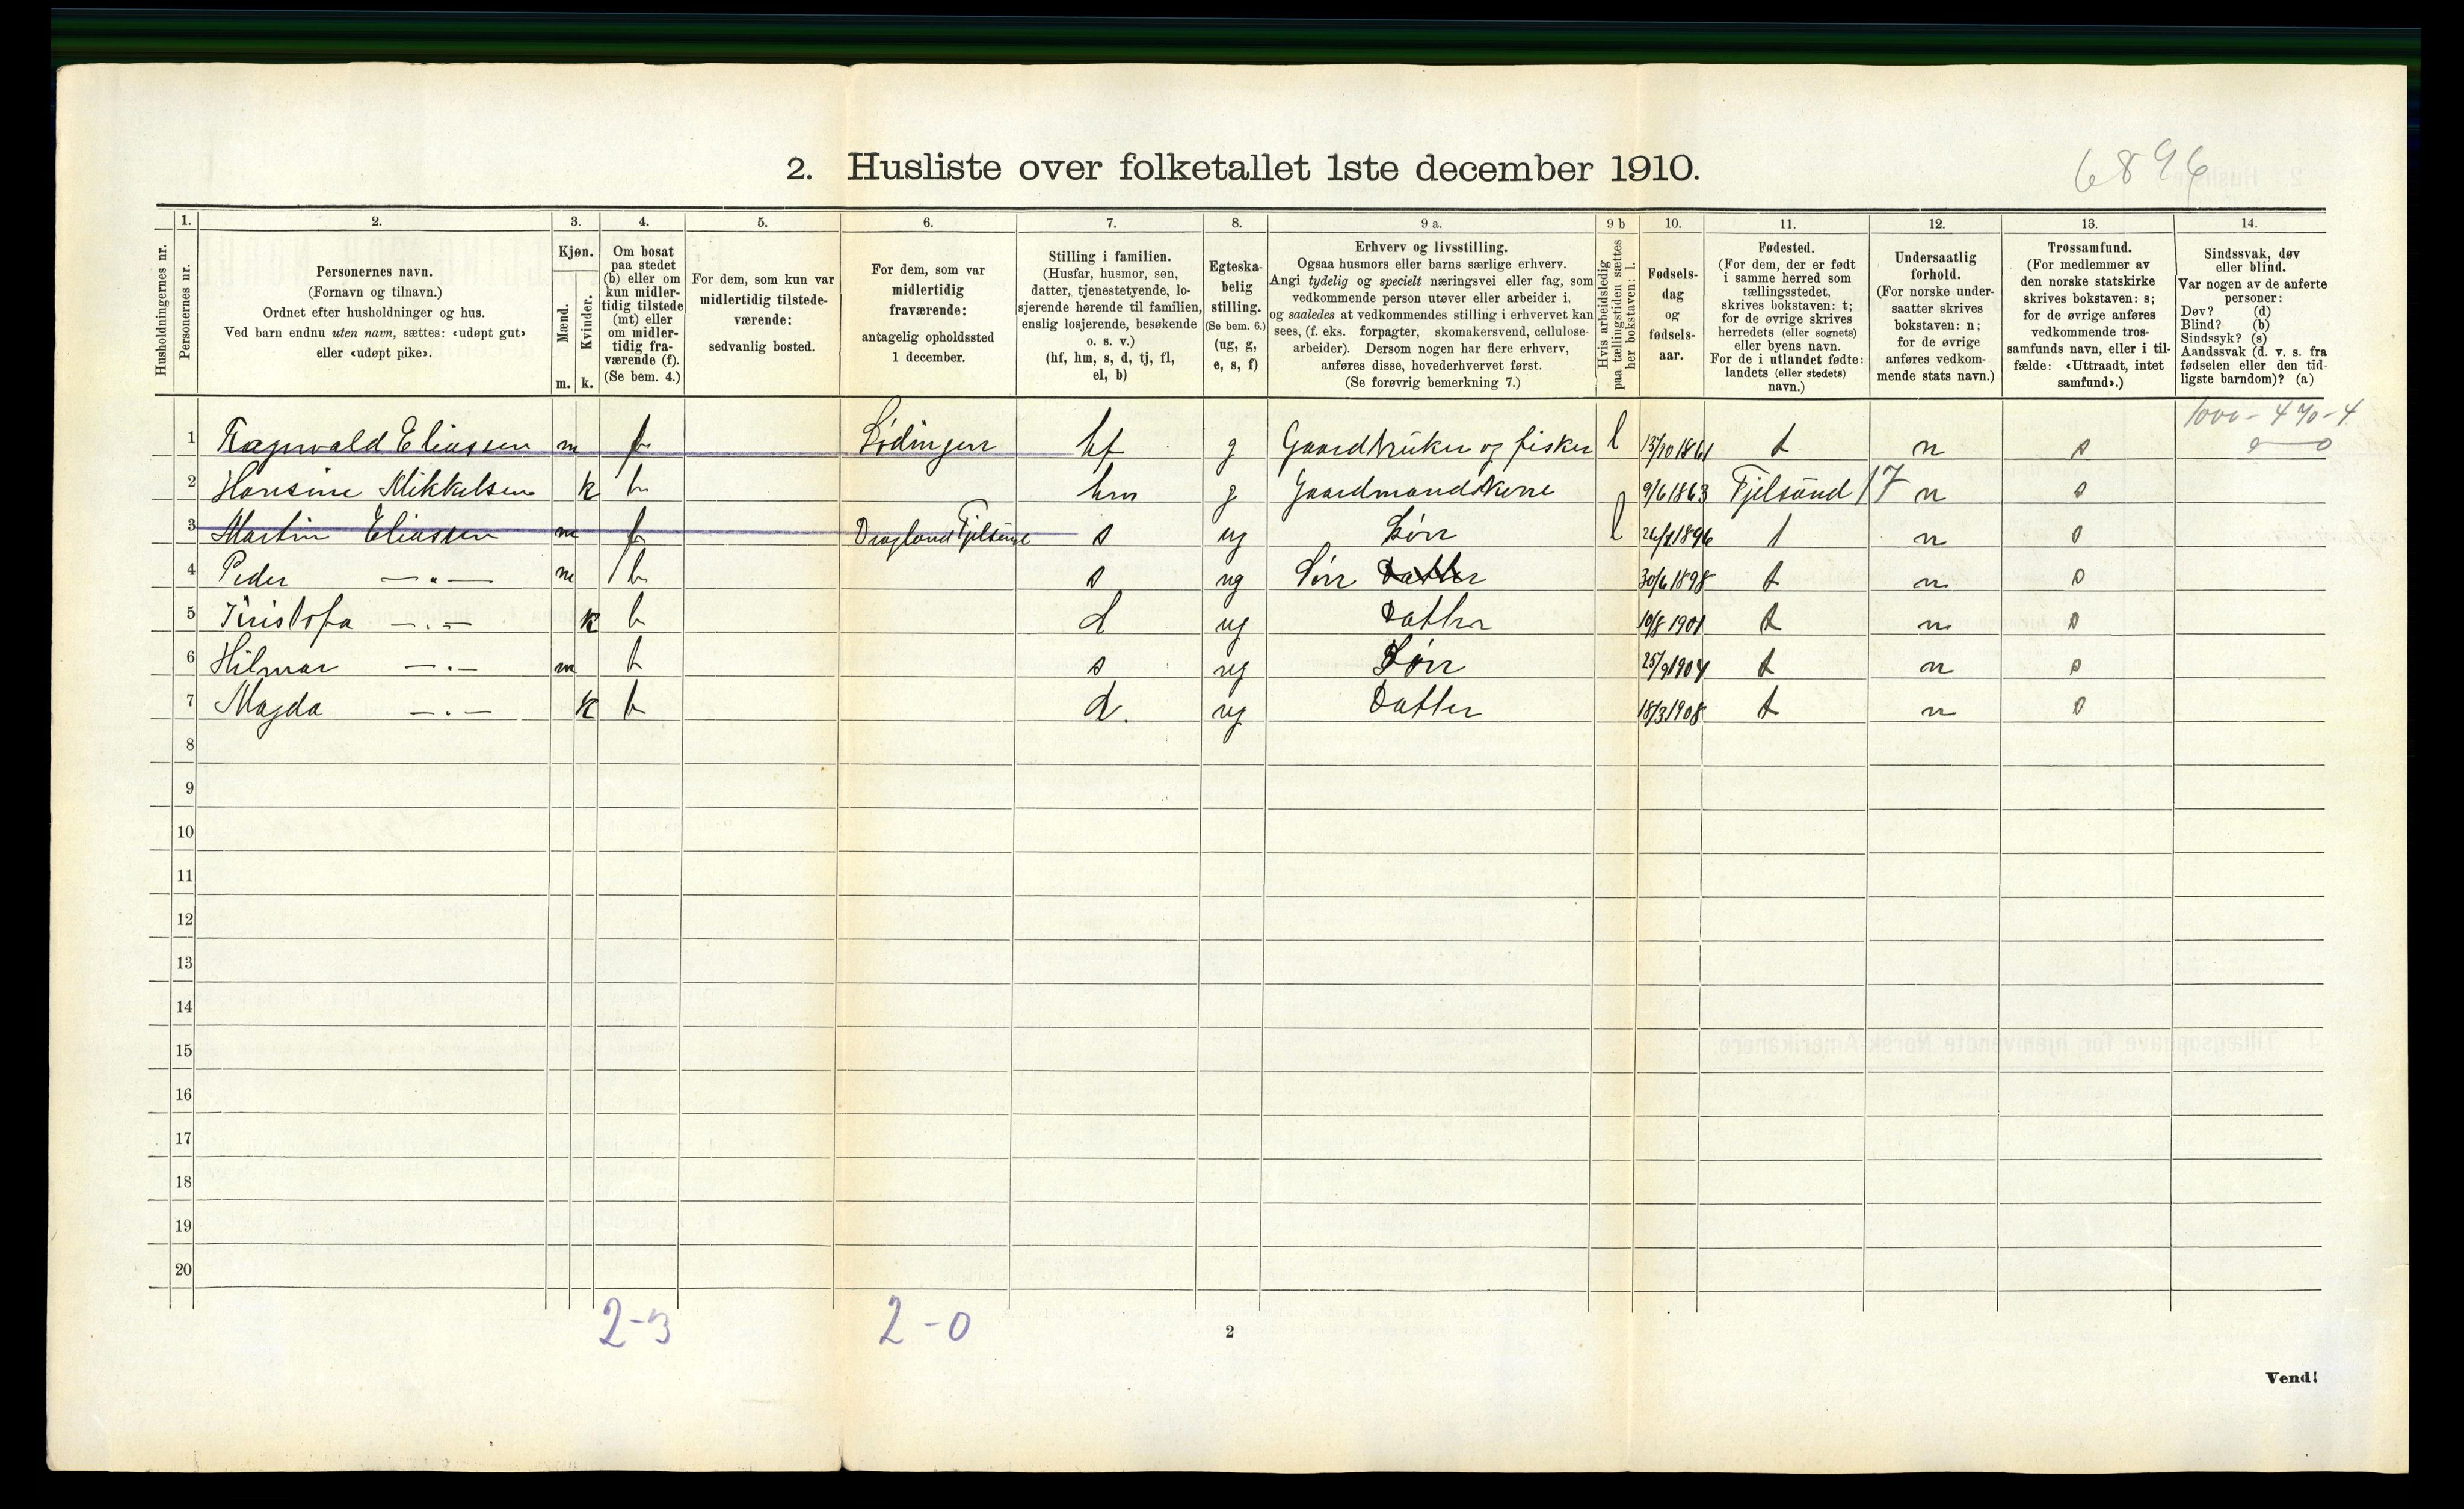 6896
2. Husliste over folketallet 1ste december 1910.
Husholdningernes nr.
1.
Personernes nr.
2.
Personernes navn.
(Fornavn og tilnavn.)
Ordnet efter husholdninger og hus.
Ved barn endnu uten navn, sættes: «udøpt gut»
eller «udøpt pike».
3.
Kjøn.
Mænd.
Kvinder.
m. k.
4.
Om bosat
paa stedet
(b) eller om
kun midler-
tidig tilstede
(mt) eller
om midler-
tidig fra-
værende (f).
(Se bem. 4.)
5.
For dem, som kun var
midlertidig tilstede-
værende:
sedvanlig bosted.
6.
For dem, som var
midlertidig
fraværende:
antagelig opholdssted
1 december.
7.
Stilling i familien.
(Husfar, husmor, søn,
datter, tjenestetyende, lo-
sjerende hørende til familien,
enslig losjerende, besøkende
o. s. v.)
(hf, hm, s, d, tj, fl,
el, b)
8.
Egteska-
belig
stilling.
(Se bem. 6.)
(ug, g,
e, s, f)
9 a.
Erhverv og livsstilling.
Ogsaa husmors eller barns særlige erhverv.
Angi tydelig og specielt næringsvei eller fag, som
vedkommende person utøver eller arbeider i,
og saaledes at vedkommendes stilling i erhvervet kan
sees, (f. eks. forpagter, skomakersvend, cellulose-
arbeider). Dersom nogen har flere erhverv,
anføres disse, hovederhvervet først.
(Se forøvrig bemerkning 7.)
9 b
Hvis arbeidsledig
paa tællingstiden sættes
her bokstaven: l.
10.
Fødsels-
dag
og
fødsels-
aar.
11.
Fødested.
(For dem, der er født
i samme herred som
tællingsstedet,
skrives bokstaven: t;
for de øvrige skrives
herredets (eller sognets)
eller byens navn.
For de i utlandet fødte:
landets (eller stedets)
navn.)
12.
Undersaatlig
forhold.
(For norske under-
saatter skrives
bokstaven: n;
for de øvrige
anføres vedkom-
mende stats navn.)
13.
Trossamfund.
(For medlemmer av
den norske statskirke
skrives bokstaven: s;
for de øvrige anføres
vedkommende tros-
samfunds navn, eller i til-
fælde: «Uttraadt, intet
samfund».)
14.
Sindssvak, døv
eller blind.
Var nogen av de anførte
personer:
Døv? (d)
Blind? (b)
Sindssyk? (s)
Aandssvak (d. v. s. fra
fødselen eller den tid-
ligste barndom)? (a)
1000 - 470 - 4
0 — 0
1 Ragnvald Eliassen m f Lødingen hf g Gaardbruker og fisker l 13/10 1861 t n s
2 Hansine Mikkelsen k b hm g Gaardmandskone 9/6 1863 Fjelsund 17 n s
3 Martin Eliassen m f Dragland Fjelsund s ug Søn l 26/1 1896 t n s
4 Peder —"— m b s ug Søn Datter 30/6 1898 t n s
5 Kristofa —"— k b d ug Datter 10/8 1901 t n s
6 Hilmar —"— m b s ug Søn 25/9 1904 t n s
7 Magda —"— k b d. ug Datter 18/3 1908 t n s
8
9
10
11
12
13
14
15
16
17
18
19
20
2-3 2-0
2
Vend!